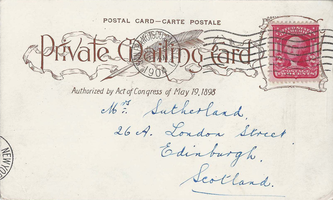 POSTAL CARD—CARTE POSTALE
Private Mailing Card
1904
Authorized by Act of Congress of May 19, 1898
Mrs Sutherland,
26 A. London Street
Edinburgh,
Scotland.
NEW YO